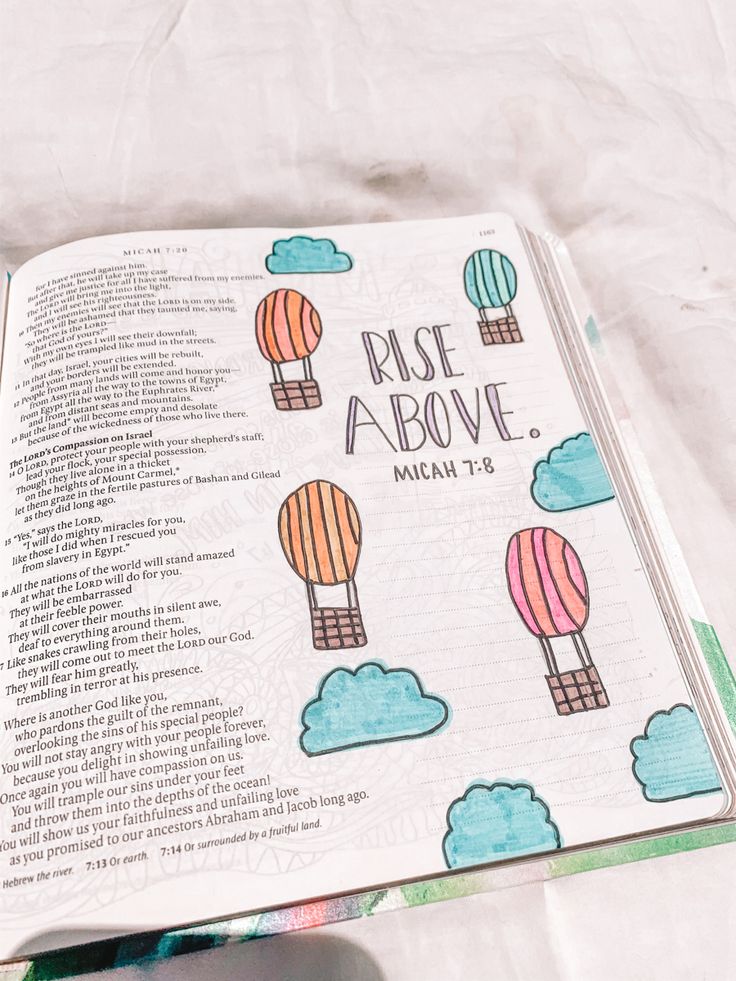 MICAH 7:20
1163
for I have sinned against him.
But after that, he will take up my case
and give me justice for all I have suffered from my enemies.
The LORD will bring me into the light,
and I will see his righteousness.
10 Then my enemies will see that the LORD is on my side.
They will be ashamed that they taunted me, saying,
"So where is the LORD—
that God of yours?"
With my own eyes I will see their downfall;
they will be trampled like mud in the streets.
11 In that day, Israel, your cities will be rebuilt,
and your borders will be extended.
12 People from many lands will come and honor you—
from Assyria all the way to the towns of Egypt,
from Egypt all the way to the Euphrates River,*
and from distant seas and mountains.
13 But the land* will become empty and desolate
because of the wickedness of those who live there.
The LORD's Compassion on Israel
14 O LORD, protect your people with your shepherd's staff;
lead your flock, your special possession.
Though they live alone in a thicket
on the heights of Mount Carmel,*
let them graze in the fertile pastures of Bashan and Gilead
as they did long ago.
15 "Yes," says the LORD,
"I will do mighty miracles for you,
like those I did when I rescued you
from slavery in Egypt."
16 All the nations of the world will stand amazed
at what the LORD will do for you.
They will be embarrassed
at their feeble power.
They will cover their mouths in silent awe,
deaf to everything around them.
7 Like snakes crawling from their holes,
they will come out to meet the LORD our God.
They will fear him greatly,
trembling in terror at his presence.
Where is another God like you,
who pardons the guilt of the remnant,
overlooking the sins of his special people?
You will not stay angry with your people forever,
because you delight in showing unfailing love.
Once again you will have compassion on us.
You will trample our sins under your feet
and throw them into the depths of the ocean!
You will show us your faithfulness and unfailing love
as you promised to our ancestors Abraham and Jacob long ago.
Hebrew the river. 7:13 Or earth. 7:14 Or surrounded by a fruitful land.
RISE
ABOVE.
MICAH 7:8